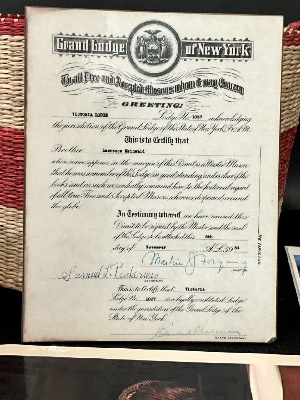 Grand Lodge of New York
To all Free and Accepted Masons whom it may Concern
GREETING:
VICTORIA LODGE Lodge No. 1027 acknowledging
the jurisdiction of the Grand Lodge of the State of New York, F. & A. M.
This is to Certify that
Brother Laurence
whose name appears in the margin of this Dimit is a Master Mason
that he was a member of this Lodge in good standing and is clear of the
books and as such we cordially commend him to the fraternal regard
of all true Free and Accepted Masons wherever dispersed around
the globe.
In Testimony whereof we have caused this
Dimit to be signed by the Master and the seal
of the Lodge to be attached this
day of November A.L. 59
MASTER
Samuel L.
SECRETARY
This is to Certify that Victoria
Lodge No. 1027 is a legally constituted Lodge
under the jurisdiction of the Grand Lodge of the
State of New York.
GRAND SECRETARY